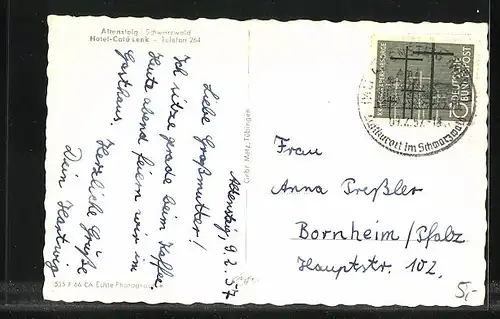 Altensteig Schwarzwald
Hotel-Café Lenk - Telefon 264
Altensteig, 9.2.57
Liebe Großmutter!
Ich sitze grade beim Kaffee.
Heute abend feiern wir im
Gasthaus.
Herzliche Grüße
Dein Hartwig
Gebr. Metz, Tübingen
DEUTSCHE
BUNDESPOST
Luftkurort im Schwarzwald
Frau
Anna Preßler
Bornheim/Pfalz
Hauptstr. 102.
555 F 66 CA Echte Photographie
5,-